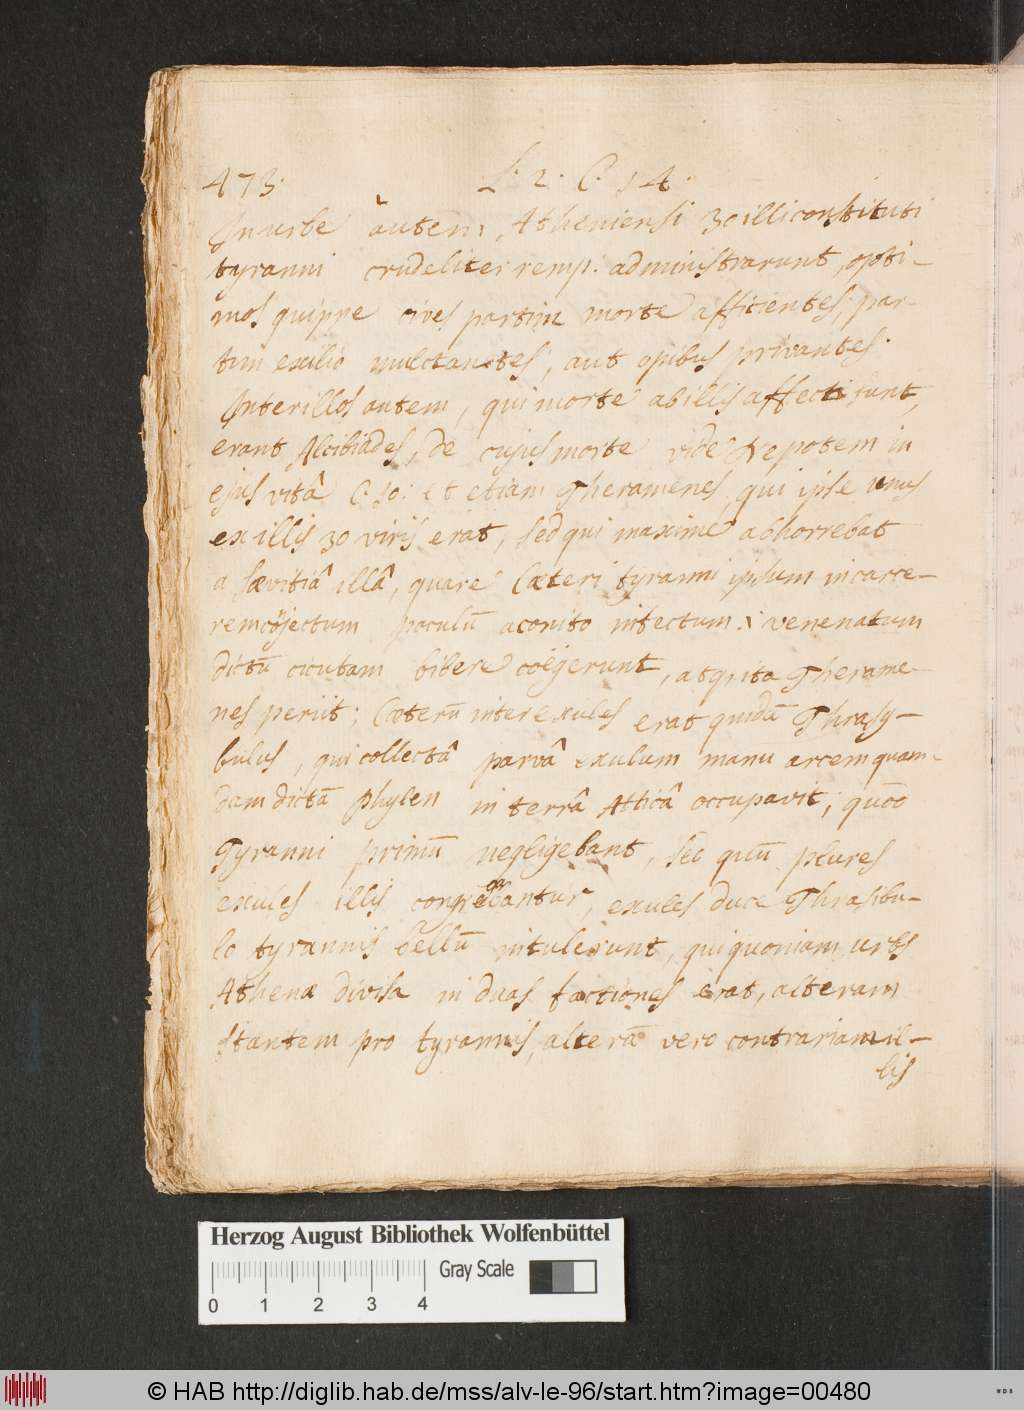 473. L. 2. C. 14.
In urbe autem Atheniensi 30 illi constituti
tyranni crudeliter remp. administrarunt, opti-
mos quippe cives partim morte afficientes, par-
tim exilio mulctantes, aut opibus privantes.
Inter illos autem, qui morte ab illis affecti sunt,
erant Alcibiades, de cujus morte vide Nepotem in
ejus vitâ C. 10. et etiam Theramenes, qui ipse unus
ex illis 30 viris erat, sed qui maxime abhorrebat
a sævitiâ illâ, quare Cæteri tyranni ipsum in carce-
rem cōjectum poculū aconito infectum. venenatum
dictū cicutam bibere coëgerunt, atq; ita Therame-
nes periit; Cæterū inter exules erat quidā Thrasy-
bulus, qui collectâ parvâ exulum manu arcem quam-
dam dictā Phylen in terrâ Atticâ occupavit; quōō
Tyranni primū negligebant, sed quū plures
exules illis congregabantur, exules duce Thrasibu-
lo tyrannis bellū intulerunt, qui quoniam urbs
Athenæ divisa in duas factiones erat, alteram
stantem pro tyrannis, alterā vero contrariam il-
lis
Herzog August Bibliothek Wolfenbüttel
Gray Scale
0 1 2 3 4
© HAB http://diglib.hab.de/mss/alv-le-96/start.htm?image=00480